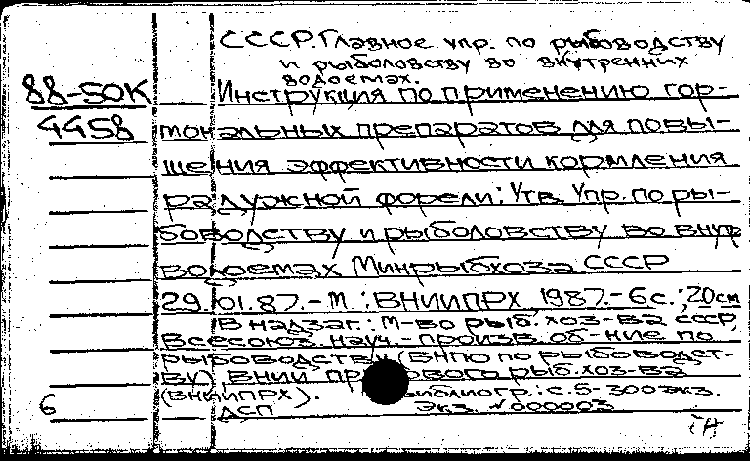 СССР. Главное упр. по рыбоводству
и рыболовству во внутренних
водоемах.
88-50К
Инструкция по применению гор-
4458
мональных препаратов для повы-
шения эффективности кормления
радужной форели: Утв. Упр. по ры-
боводству и рыболовству во внутр
водоемах Минрыбхоза СССР
29.01.87.-М.: ВНИИПРХ, 1987.-6с.; 20см
В надзаг.: М-во рыб. хоз-ва СССР,
Всесоюз. науч.-произв. об-ние по
рыбоводству (ВНПО по рыбоводст-
ву), ВНИИ пр ового рыб. хоз-ва
(ВНИИПРХ). Библиогр.: с.5-300экз.
6
ДСП Экз. №000003